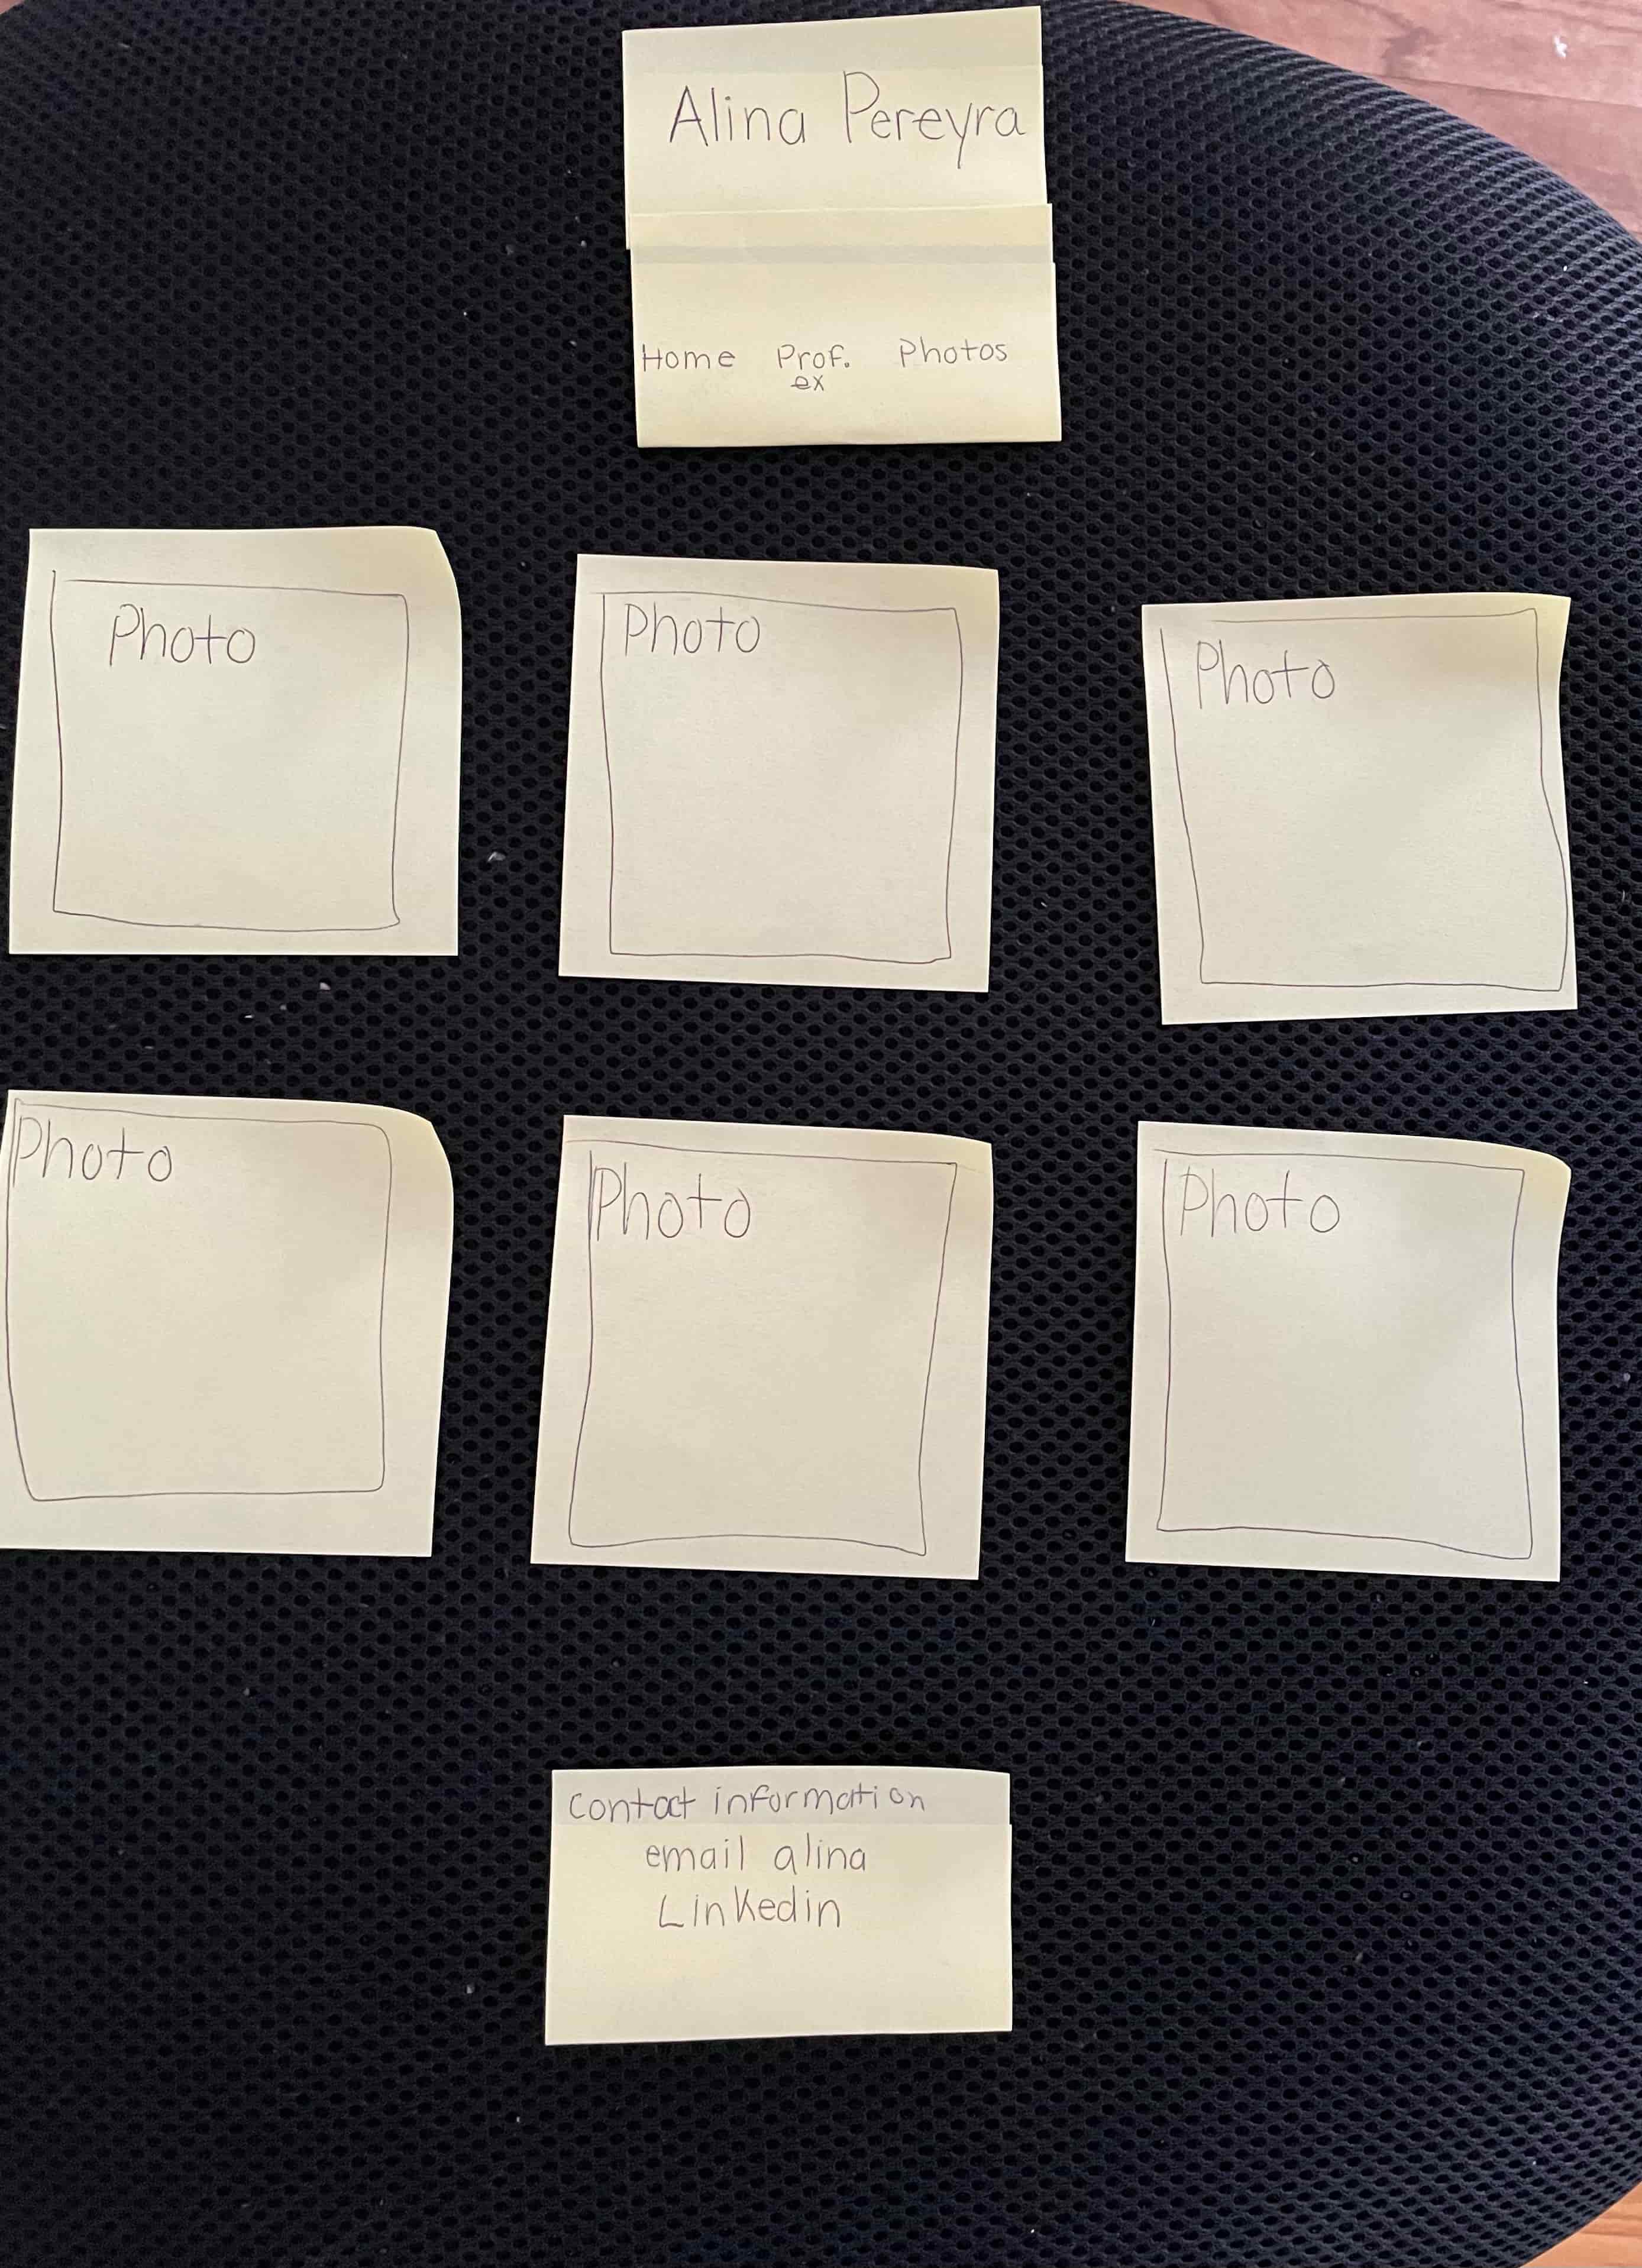 Alina Pereyra
Home Prof. Photos
ex
Photo
Photo
Photo
Photo
Photo
Photo
contact information
email alina
Linkedin